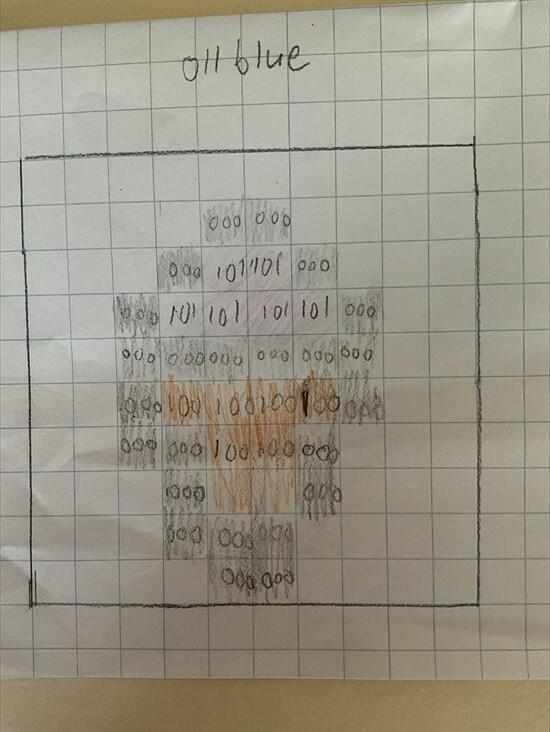 011 blue
000 000
000 101 101 000
000 101 101 101 101 000
000 000 000 000 000 000
000 100 100 100 100 000
000 000 100 100 000
000 000
000 000 000
000 000